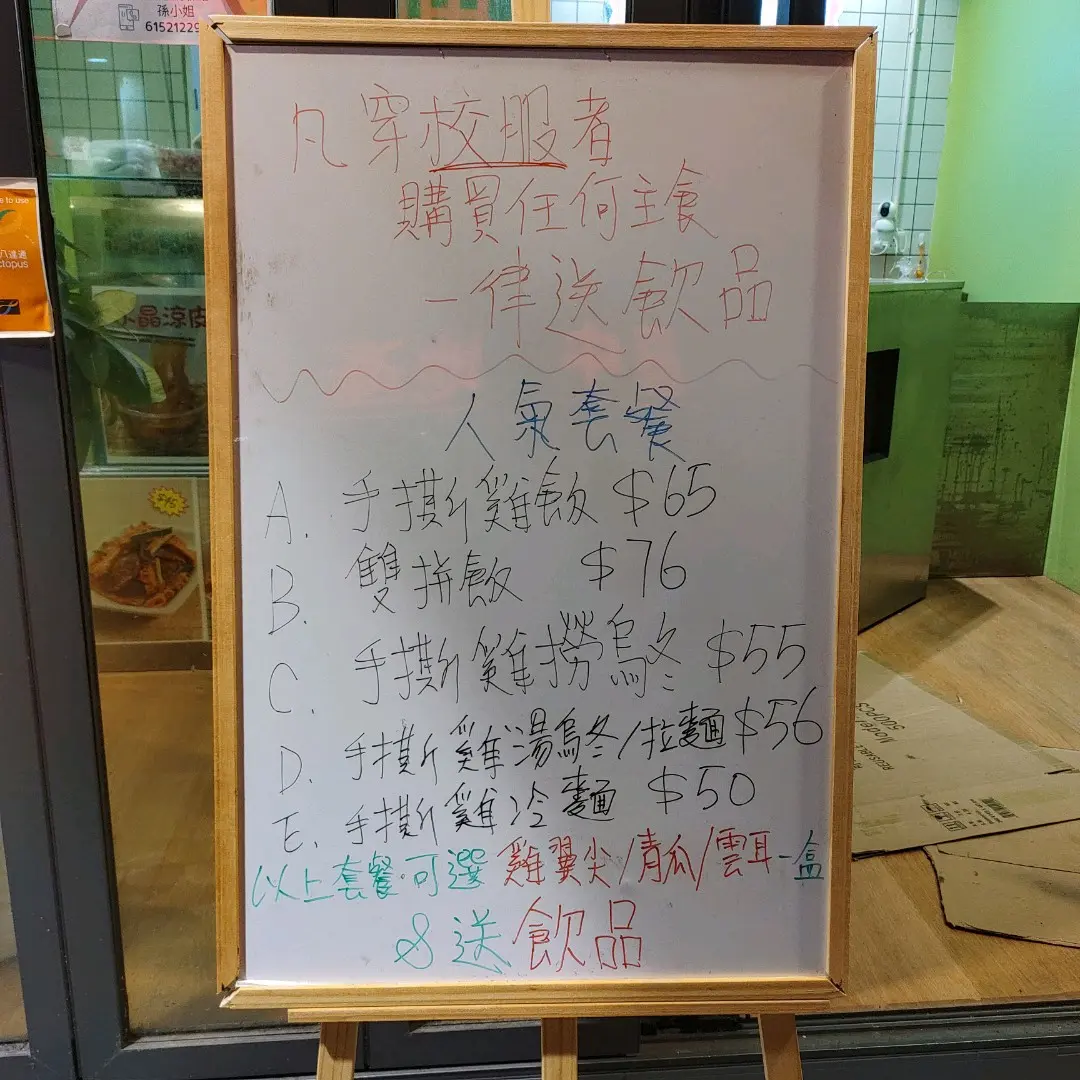 孫小姐
61521229
to use
八達通
ctopus
晶涼皮
凡穿校服者
購買任何主食
一律送飲品
人氣套餐
A. 手撕雞飯 $65
B. 雙拼飯 $76
C. 手撕雞撈烏冬 $55
D. 手撕雞湯烏冬/拉麵 $56
E. 手撕雞冷麵 $50
以上套餐可選雞翼尖/青瓜/雲耳一盒
& 送飲品
500PCS
Model
REUSABLE